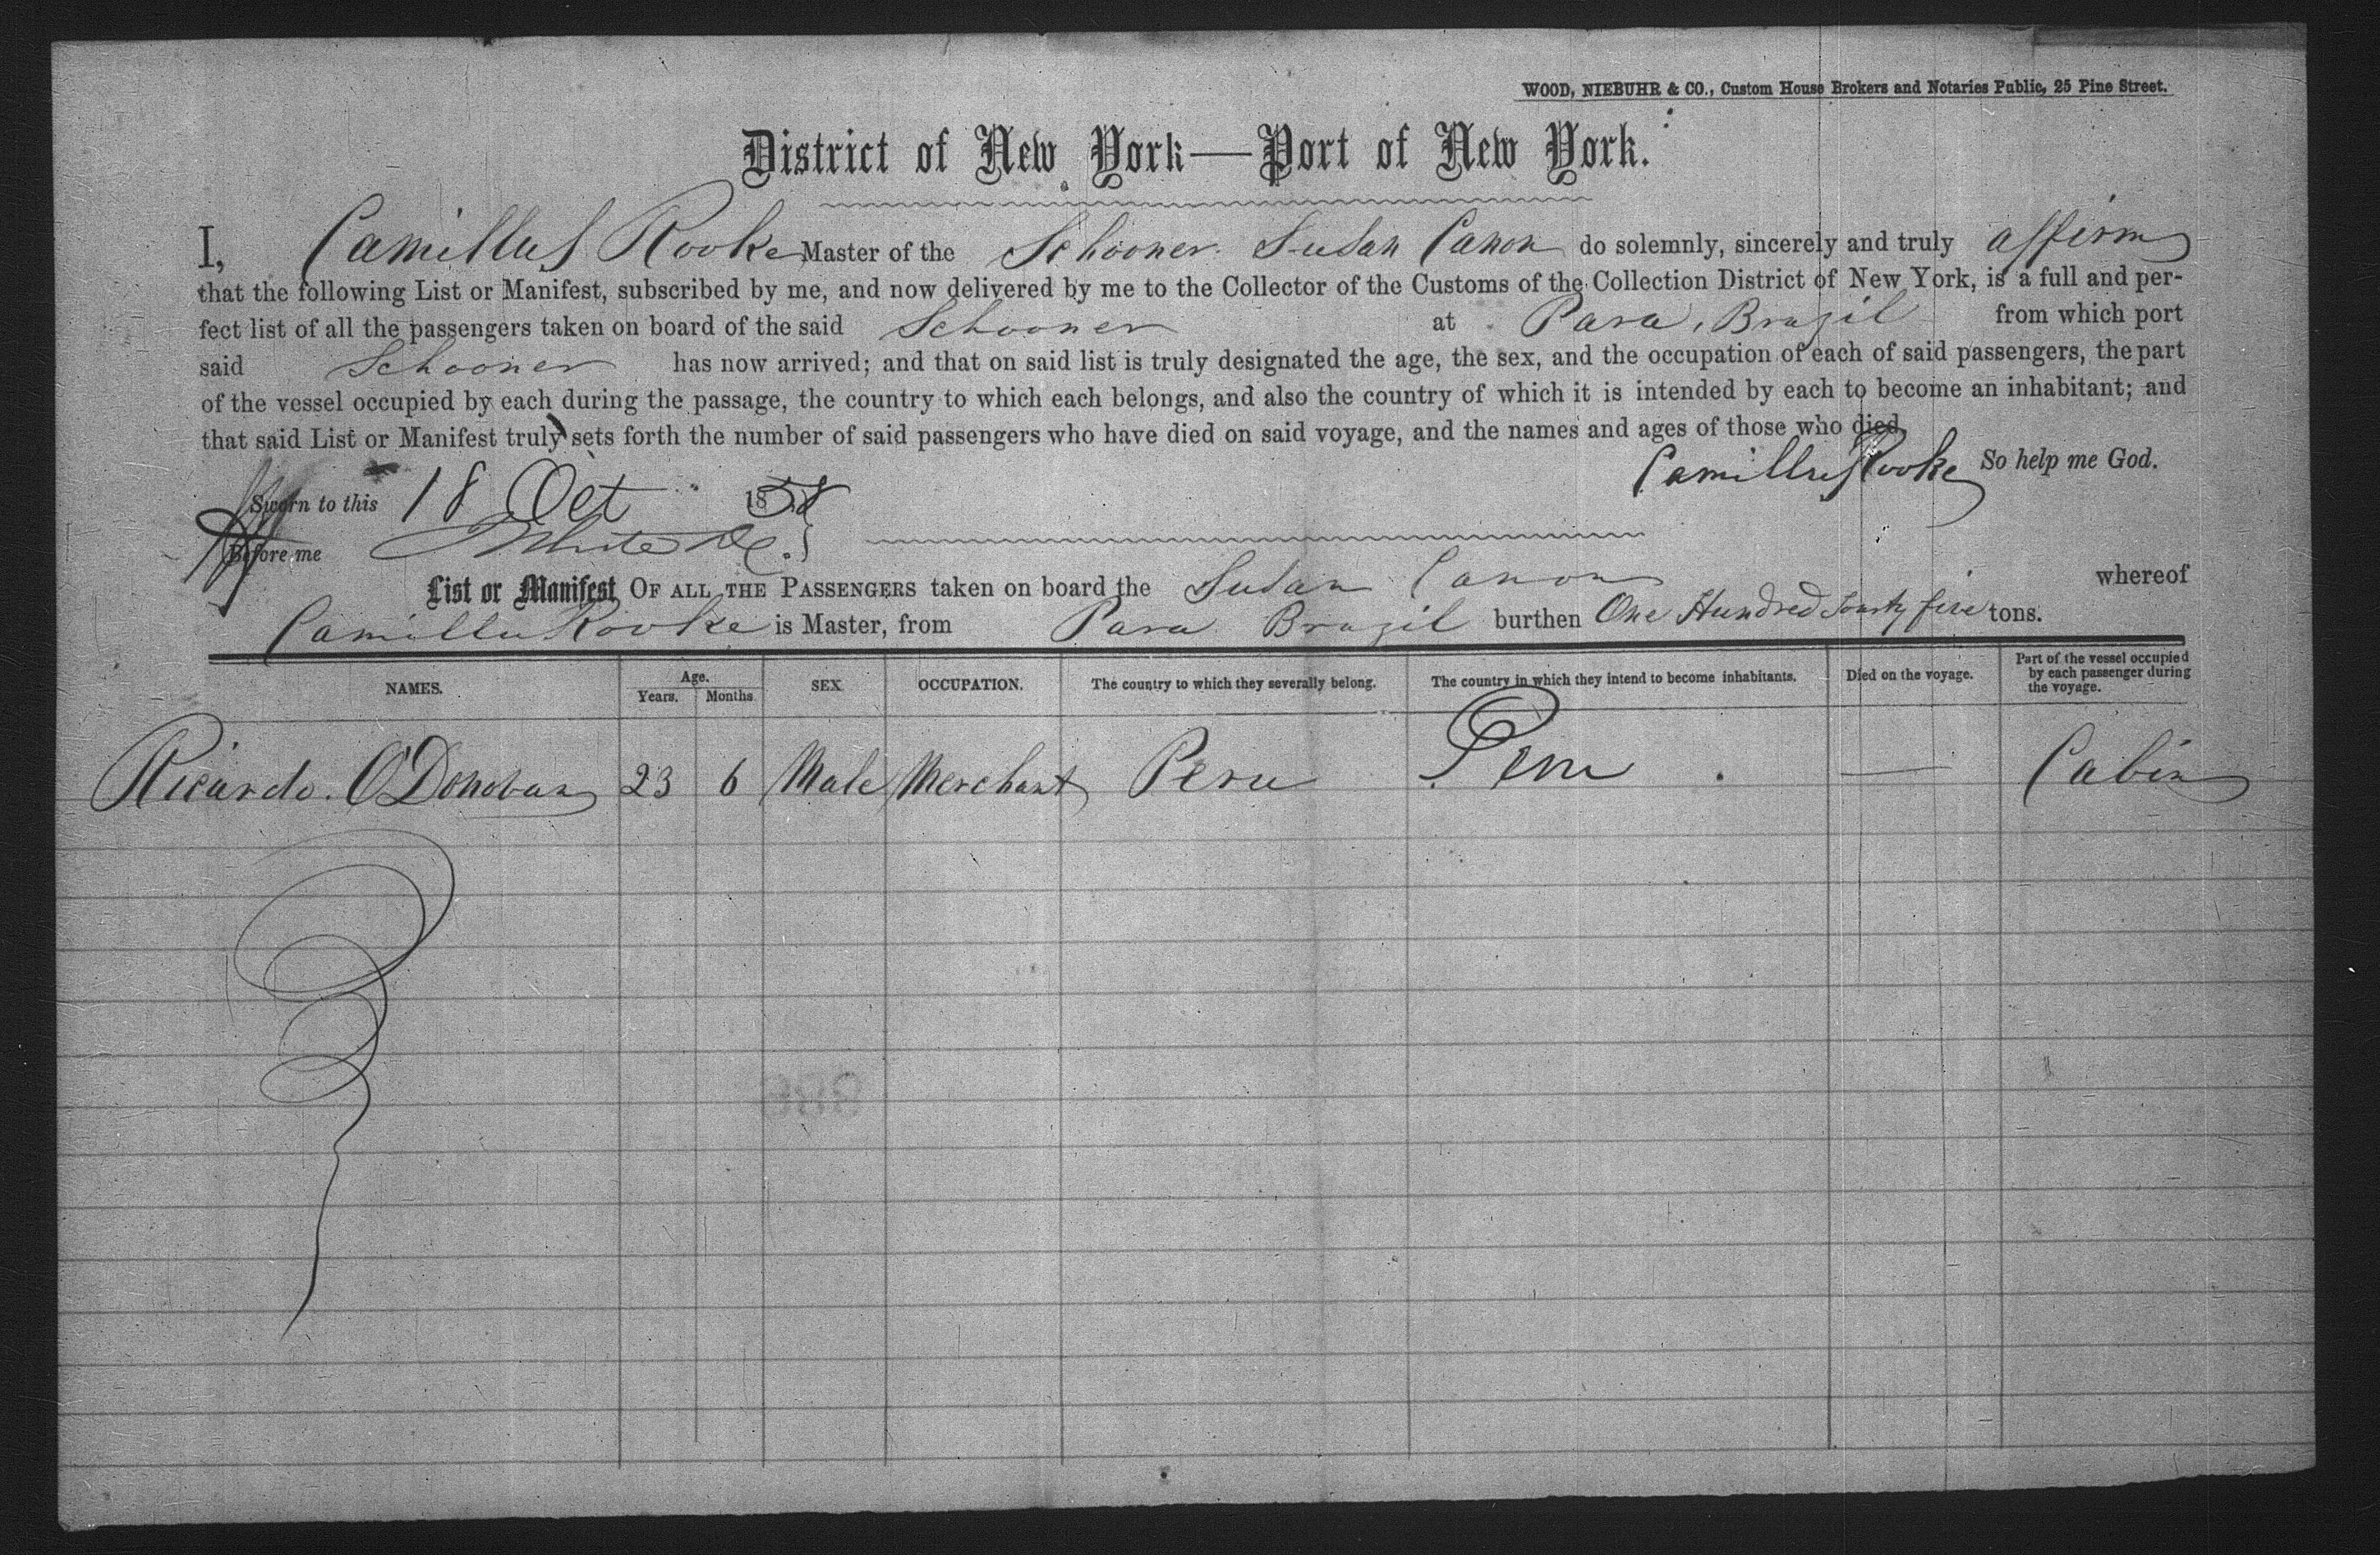 WOOD, NIEBUHR & CO., Custom House Brokers and Notaries Public, 25 Pine Street.
District of New York—Port of New York.
I, Camillus Rooke Master of the Schooner Susan Canon do solemnly, sincerely and truly affirm
that the following List or Manifest, subscribed by me, and now delivered by me to the Collector of the Customs of the Collection District of New York, is a full and per-
fect list of all the passengers taken on board of the said Schooner at Para, Brazil from which port
said Schooner has now arrived; and that on said list is truly designated the age, the sex, and the occupation of each of said passengers, the part
of the vessel occupied by each during the passage, the country to which each belongs, and also the country of which it is intended by each to become an inhabitant; and
that said List or Manifest truly sets forth the number of said passengers who have died on said voyage, and the names and ages of those who died.
Camillus Rooke So help me God.
Sworn to this 18 Oct 1858
Before me White
List or Manifest OF ALL THE PASSENGERS taken on board the Susan Canon whereof
Camillus Rooke is Master, from Para Brazil burthen One Hundred fourty five tons.
NAMES. Age. Years. Months. SEX OCCUPATION. The country to which they severally belong. The country in which they intend to become inhabitants. Died on the voyage. Part of the vessel occupied by each passenger during the voyage.
Ricardo. O'Donovan 23 6 Male Merchant Peru Peru — Cabin